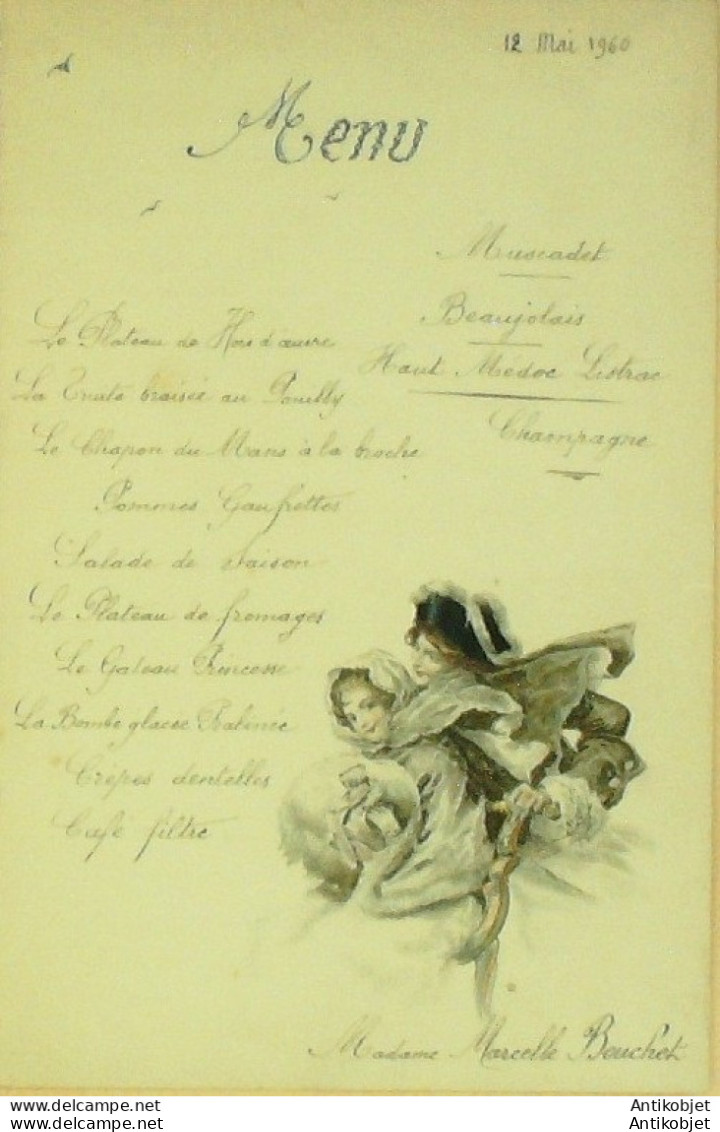 12 Mai 1960
Menu
Muscadet
Beaujolais
Haut Médoc Listrac
Champagne
Le Plateau de Hors d'œuvre
La Truite braisée au Pouilly
Le Chapon du Mans à la broche
Pommes Gaufrettes
Salade de Saison
Le Plateau de fromages
Le Gateau Princesse
La Bombe glacée Pralinée
Crêpes dentelles
Café filtre
Madame Marcelle Beuchet
www.antikobjet.com
www.antikobjet.com
Antikobjet
Antikobjet